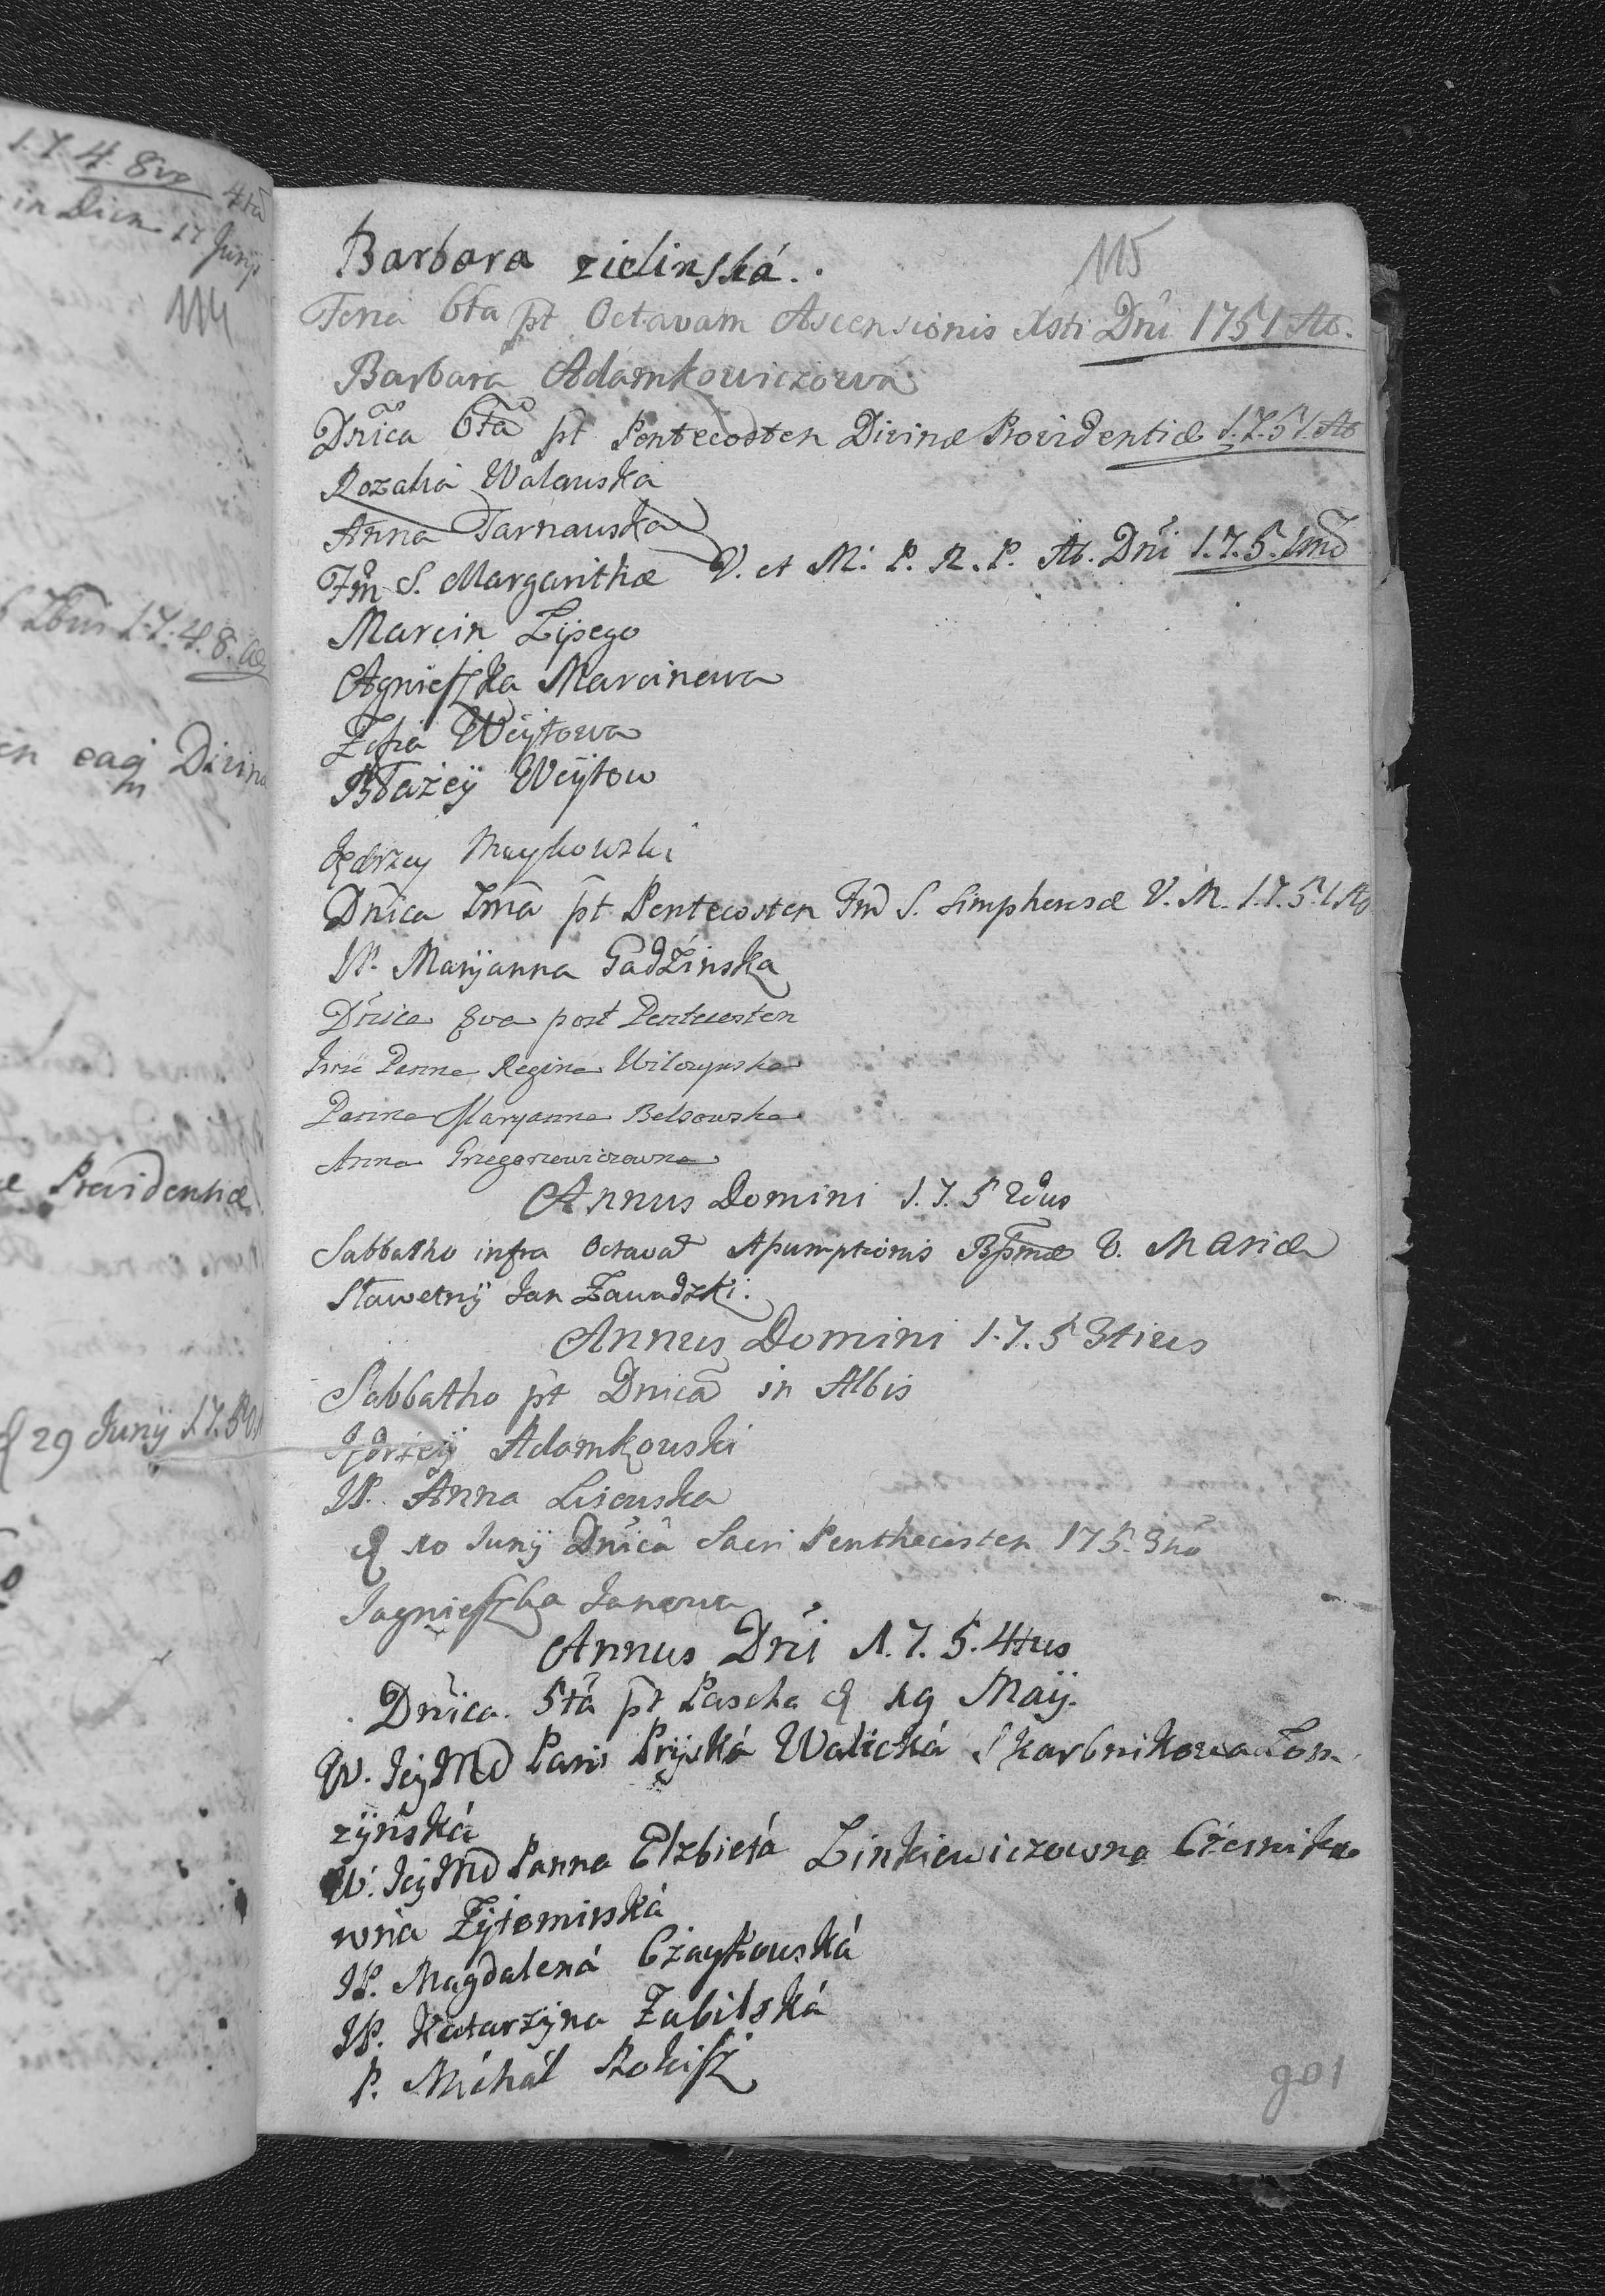 1.7.4.8vo 4ta
in Diem 17 Junij
114
1.7.4.8.
Divina
Providentiæ
29 Junij 1.7.50
115
Barbara zielinská.
Feria 6ta pt Octavam Ascensionis Xsti Dni 1751 Ao.
Barbara Adamkowiczowa
Dnica 6ta pt Pentecosten Divinæ Providentiæ 1.7.51. Ao
Rozalia Walewska
Anna Tarnawska
Fm S. Margarithæ V. et M. P. N. P. Ao. Dni 1.7.5.1mo
Marcin Lijsego
Agnieszka Marcinowa
Zofia Weÿtowa
Błażeÿ Weÿtow
Jędrzey Maykowski
Dnica 7ma pt Pentecosten Fm S. Simphorosæ V. M. 1.7.5.1 Ao
JP. Marÿanna Gadźinska
Dnica 8va post Pentecosten
Panna Regina Wilczynska
Panna Maryanna Belsowska
Anna Grzegorzewiczowna
Annus Domini 1.7.5 2dus
Sabbatho infra Octavas Assumptionis Bssmæ V. Mariæ
Sławetnÿ Jan Zawadzki.
Annus Domini 1.7.5 3tius
Sabbatho pt Dnica in Albis
Jędrzeÿ Adamkowski
JP. Anna Lisowska
d 10 Junij Dnica Sacri Penthecosten 175.3tio
Jagnieszka Janowa
Annus Dni 1.7.5.4tus
Dnica. 5ta pt Pascha d 19 Maij.
W. JeyMć Pani Prÿską Walická Skarbnikowa Łom
zÿńská
W. JeyMć Panna Elzbietá Linkiewiczowna Cżesniko
wna Zÿtomirská
JP. Magdalená Czaykowská
JP. Katarzÿna Zabilská
P. Michał Rokisz
901